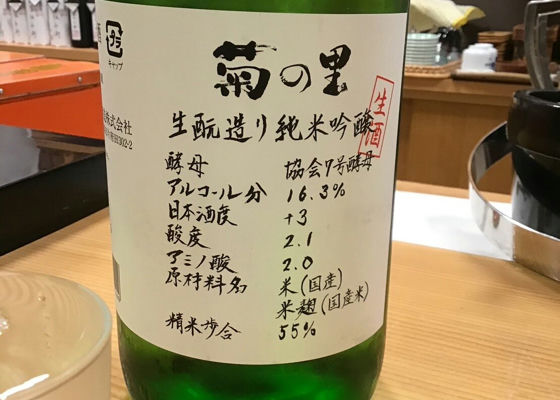 プラ
キャップ
菊の里
生酛造り純米吟醸
生酒
酵母 協会7号酵母
アルコール分 16.3%
日本酒度 +3
酸度 2.1
アミノ酸 2.0
原材料名 米(国産)
米麹(国産米)
精米歩合 55%
株式会社
302-2